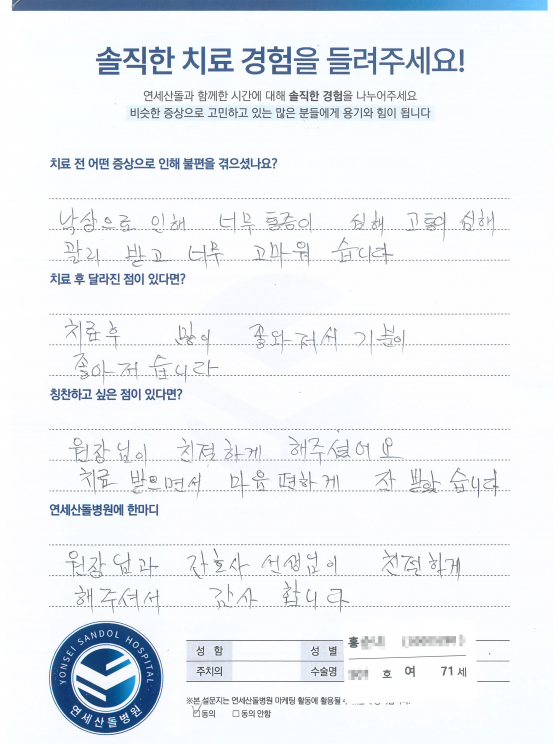 솔직한 치료 경험을 들려주세요!
연세산돌과 함께한 시간에 대해 솔직한 경험을 나누어주세요
비슷한 증상으로 고민하고 있는 많은 분들에게 용기와 힘이 됩니다
치료 전 어떤 증상으로 인해 불편을 겪으셨나요?
낙상으로 인해 너무 통증이 심해 고통이 심해
괄리 받고 너무 고마워 습니다
치료 후 달라진 점이 있다면?
치료후 많이 좋와저서 기분이
좋아저 습니다
칭찬하고 싶은 점이 있다면?
원장님이 친절하게 해주셨어요
치료 받으면서 마음 편하게 잘 받았 습니다
연세산돌병원에 한마디
원장님과 간호사 선생님이 친절하게
해주셔서 감사 합니다
YONSEI SANDOL HOSPITAL
연세산돌병원
성 함 성 별 홍
주치의 수술명 호 여 71 세
※본 설문지는 연세산돌병원 마케팅 활동에 활용될
동의 동의 안함